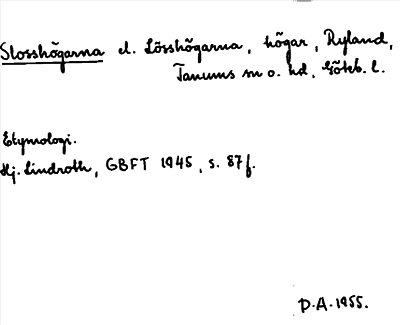 Slosshögarna el. Lösshögarna, högar, Ryland,
Tanums sn o. hd, Göteb. l.
Etymologi.
Hj. Lindroth, GBFT 1945, s. 87f.
D.A. 1955.